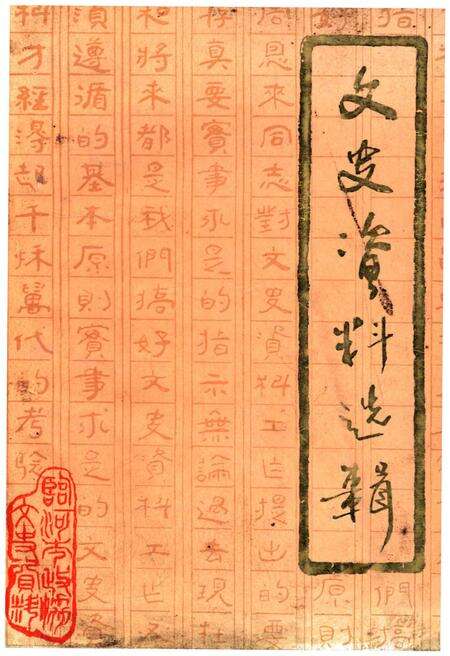 文史資料选輯
指
們搞
原則
周恩來同志對文史資料工作提出的要
真要實事求是的指示無論過去現在
和將來都是我們搞好文史資料工作必
須遵循的基本原則實事求是的文史資
料才經得起千秋萬代的考驗
臨河市政協
文史資料